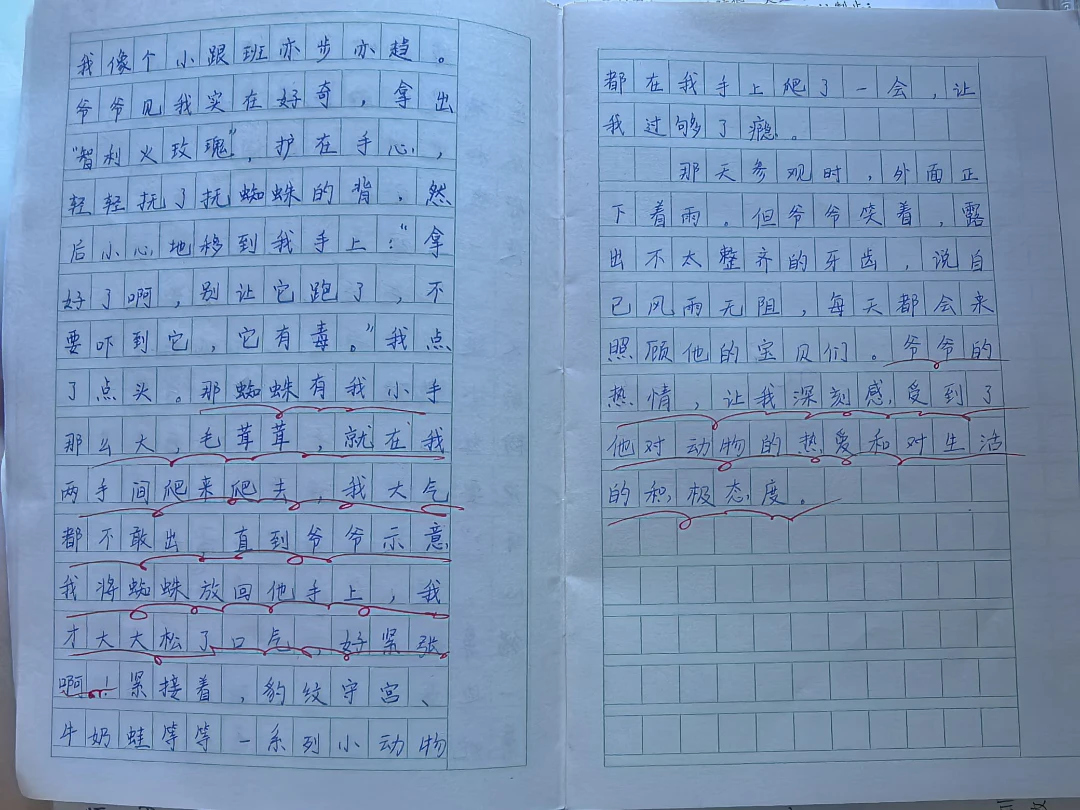 我像个小跟班亦步亦趋。
爷爷见我实在好奇，拿出
“智利火玫瑰”，护在手心，
轻轻抚了抚蜘蛛的背，然
后小心地移到我手上：“拿
好了啊，别让它跑了，不
要吓到它，它有毒。”我点
了点头。那蜘蛛有我小手
那么大，毛茸茸，就在我
两手间爬来爬去，我大气
都不敢出，直到爷爷示意
我将蜘蛛放回他手上，我
才大大松了口气，好紧张
啊！紧接着，豹纹守宫、
牛奶蛙等等一系列小动物
都在我手上爬了一会，让
我过够了瘾。
那天参观时，外面正
下着雨。但爷爷笑着，露
出不太整齐的牙齿，说自
己风雨无阻，每天都会来
照顾他的宝贝们。爷爷的
热情，让我深刻感受到了
他对动物的热爱和对生活
的积极态度。